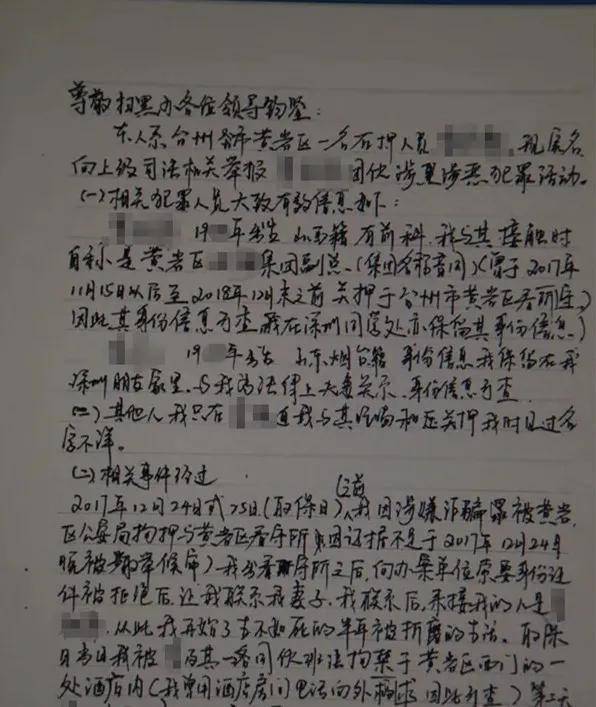 尊敬扫黑办各位领导钧鉴:
本人系台州市黄岩区一名在押人员 现实名
向上级司法相关举报 团伙涉黑涉恶犯罪活动。
(一)相关犯罪人员大致有效信息如下:
19 年出生 山西籍 有前科,我与其接触时
自称是黄岩区 集团副总,(集团名称音同)(曾于2017年
11月15日以后至2018年12月末之前关押于台州市黄岩区看所)
因此其身份信息可查 我在深圳同居处亦保留其身份信息)
19 年出生 山东烟台籍 身份信息我保留在我
深圳朋友家里,与我为法律上夫妻关系,身份信息可查
(二)其他人我只在 逼我与其 和在关押我时见过名
字不详。
(二)相关事件经过
2017年12月24日或25日(取保日)之前我因涉嫌诈骗罪被黄岩
区公安局拘押与黄岩区看守所 因证据不足于2017年12月24日
晚被取保候审)我出看守所之后,向办案单位索要身份证
件被拒绝后,让我联系我妻子,我联系后,来接我的人是
从此我开始了生不如死的半年被折磨的生活。取保
日当日我被 及其一名同伙非法拘禁于黄岩区西门的一
处酒店内(我曾用酒店房间电话向外 求 因此可查)第二天